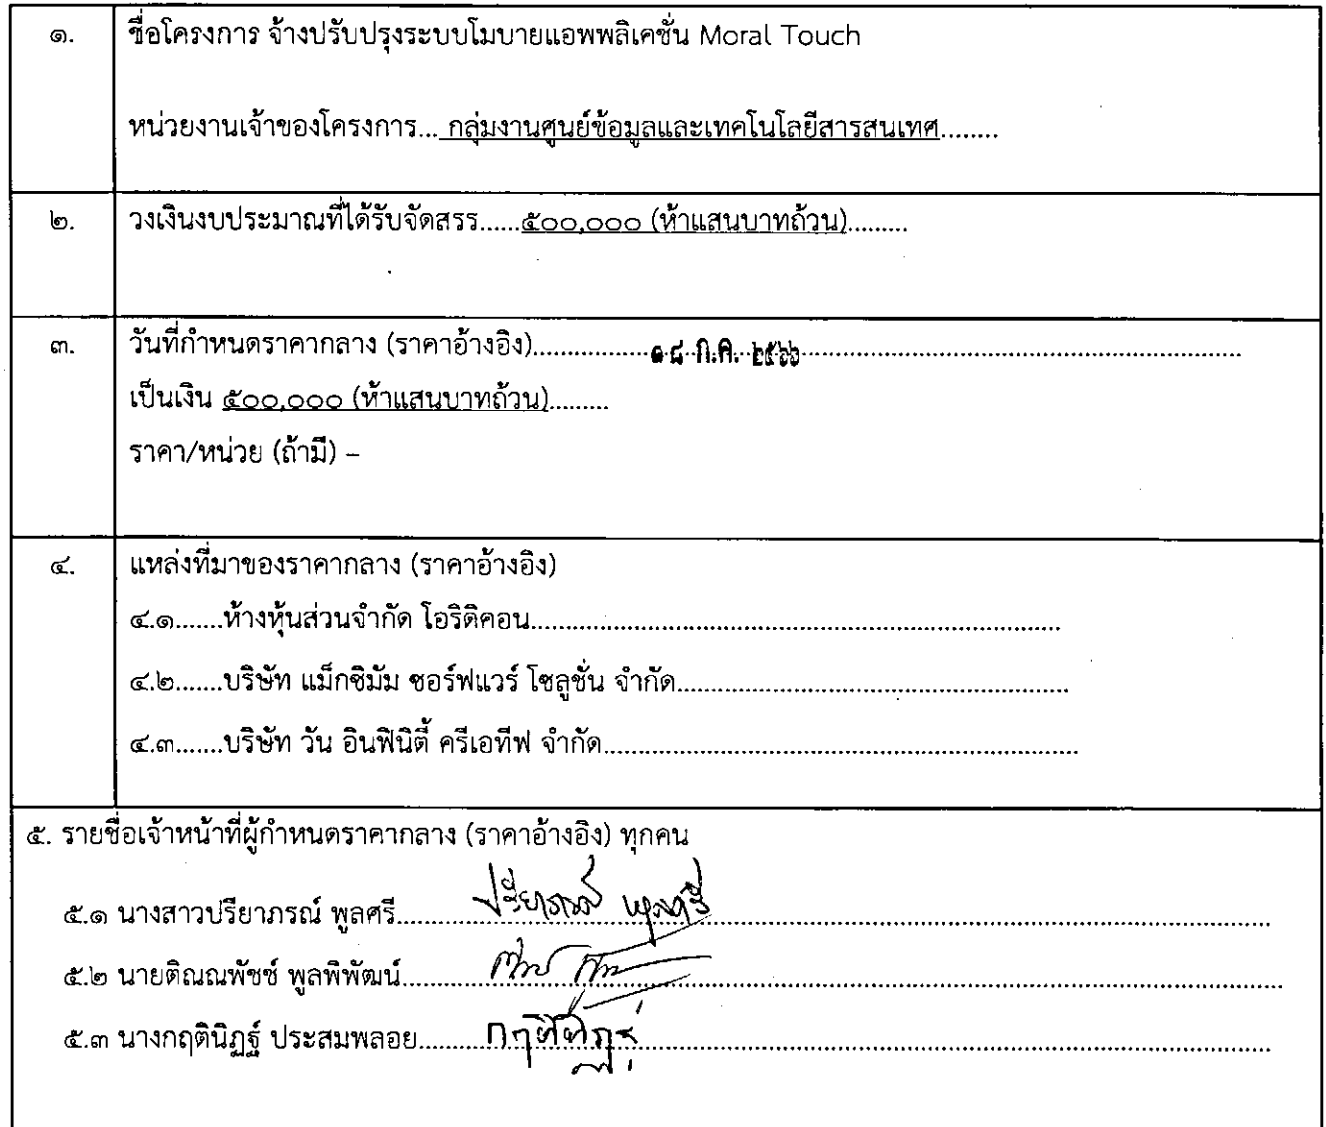 ๑. ชื่อโครงการ จ้างปรับปรุงระบบโมบายแอพพลิเคชั่น Moral Touch
หน่วยงานเจ้าของโครงการ... กลุ่มงานศูนย์ข้อมูลและเทคโนโลยีสารสนเทศ........
๒. วงเงินงบประมาณที่ได้รับจัดสรร......๕๐๐,๐๐๐ (ห้าแสนบาทถ้วน).........
๓. วันที่กำหนดราคากลาง (ราคาอ้างอิง)................๑๘ ก.ค. ๒๕๖๖................
เป็นเงิน ๕๐๐,๐๐๐ (ห้าแสนบาทถ้วน).........
ราคา/หน่วย (ถ้ามี) –
๔. แหล่งที่มาของราคากลาง (ราคาอ้างอิง)
๔.๑.......ห้างหุ้นส่วนจำกัด โอริดิคอน................
๔.๒.......บริษัท แม็กซิมัม ซอร์ฟแวร์ โซลูชั่น จำกัด................
๔.๓.......บริษัท วัน อินฟินิตี้ ครีเอทีฟ จำกัด................
๕. รายชื่อเจ้าหน้าที่ผู้กำหนดราคากลาง (ราคาอ้างอิง) ทุกคน
๕.๑ นางสาวปรียาภรณ์ พูลศรี........... ปรียาภรณ์ พูลศรี
๕.๒ นายติณณพัชช์ พูลพิพัฒน์...........
๕.๓ นางกฤตินิฏฐ์ ประสมพลอย...........